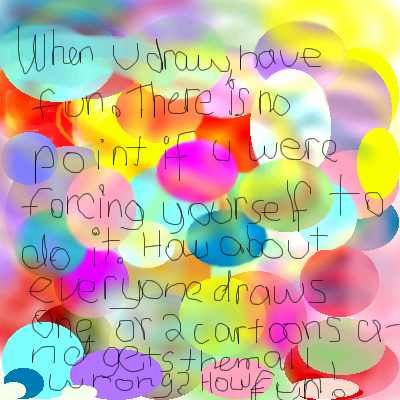 When U draw, have
fun. There is no
point if u were
forcing yourself to
do it. How about
everyone draws
one or 2 cartoons a-
nd gets them all
wrong? How fun!